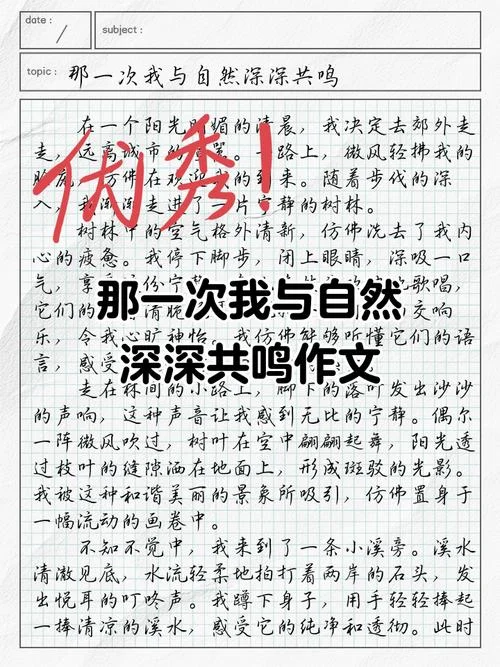 date :
subject :
topic : 那一次我与自然深深共鸣
在一个阳光明媚的清晨，我决定去郊外走
走，远离城市的喧嚣。路上，微风轻拂我的
脸庞，仿佛在欢迎我的到来。随着步伐的深
入，我渐渐走进了一片宁静的树林。
优秀！
树林中的空气格外清新，仿佛洗去了我内
心的疲惫。我停下脚步，闭上眼睛，深吸一口
气，享受这份宁静。歌唱，
它们的交响
乐，令我心旷神怡。我仿佛能够听懂它们的语
言，感受
那一次我与自然
深深共鸣作文
走在林间的小路上，脚下的落叶发出沙沙
的声响，这种声音让我感到无比的宁静。偶尔
一阵微风吹过，树叶在空中翩翩起舞，阳光透
过枝叶的缝隙洒在地面上，形成斑驳的光影。
我被这种和谐美丽的景象所吸引，仿佛置身于
一幅流动的画卷中。
不知不觉中，我来到了一条小溪旁。溪水
清澈见底，水流轻柔地拍打着两岸的石头，发
出悦耳的叮咚声。我蹲下身子，用手轻轻捧起
一捧清凉的溪水，感受它的纯净和透彻。此时